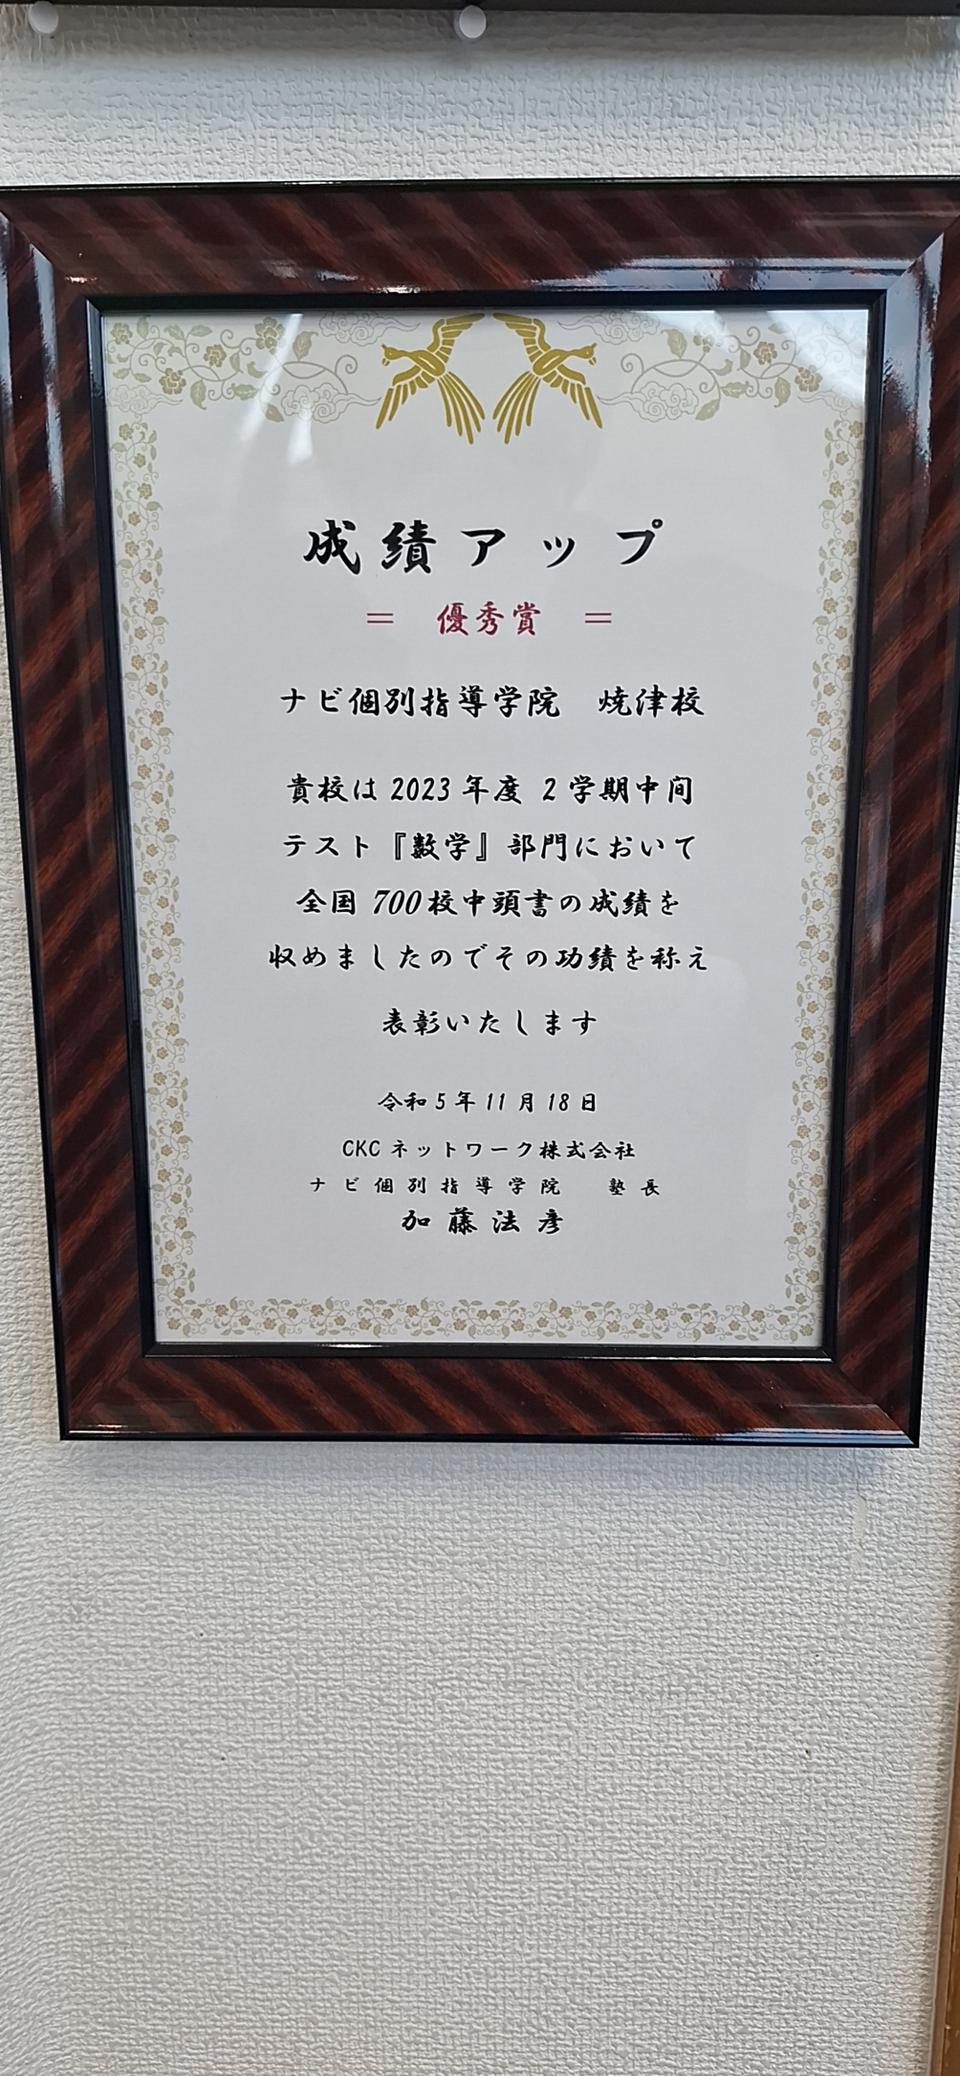 成績アップ
＝ 優秀賞 ＝
ナビ個別指導学院 焼津校
貴校は2023年度 2学期中間
テスト『数学』部門において
全国700校中頭書の成績を
収めましたのでその功績を称え
表彰いたします
令和5年11月18日
CKCネットワーク株式会社
ナビ個別指導学院 塾長
加藤法彦